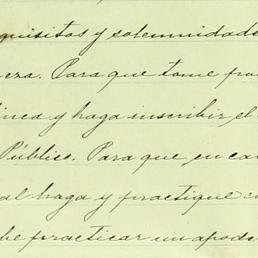 quisitos y solemnidade
eza. Para que tome pose
inca y haga inscribir el
Público. Para que en ca
al haga y practique c
be practicar un apode